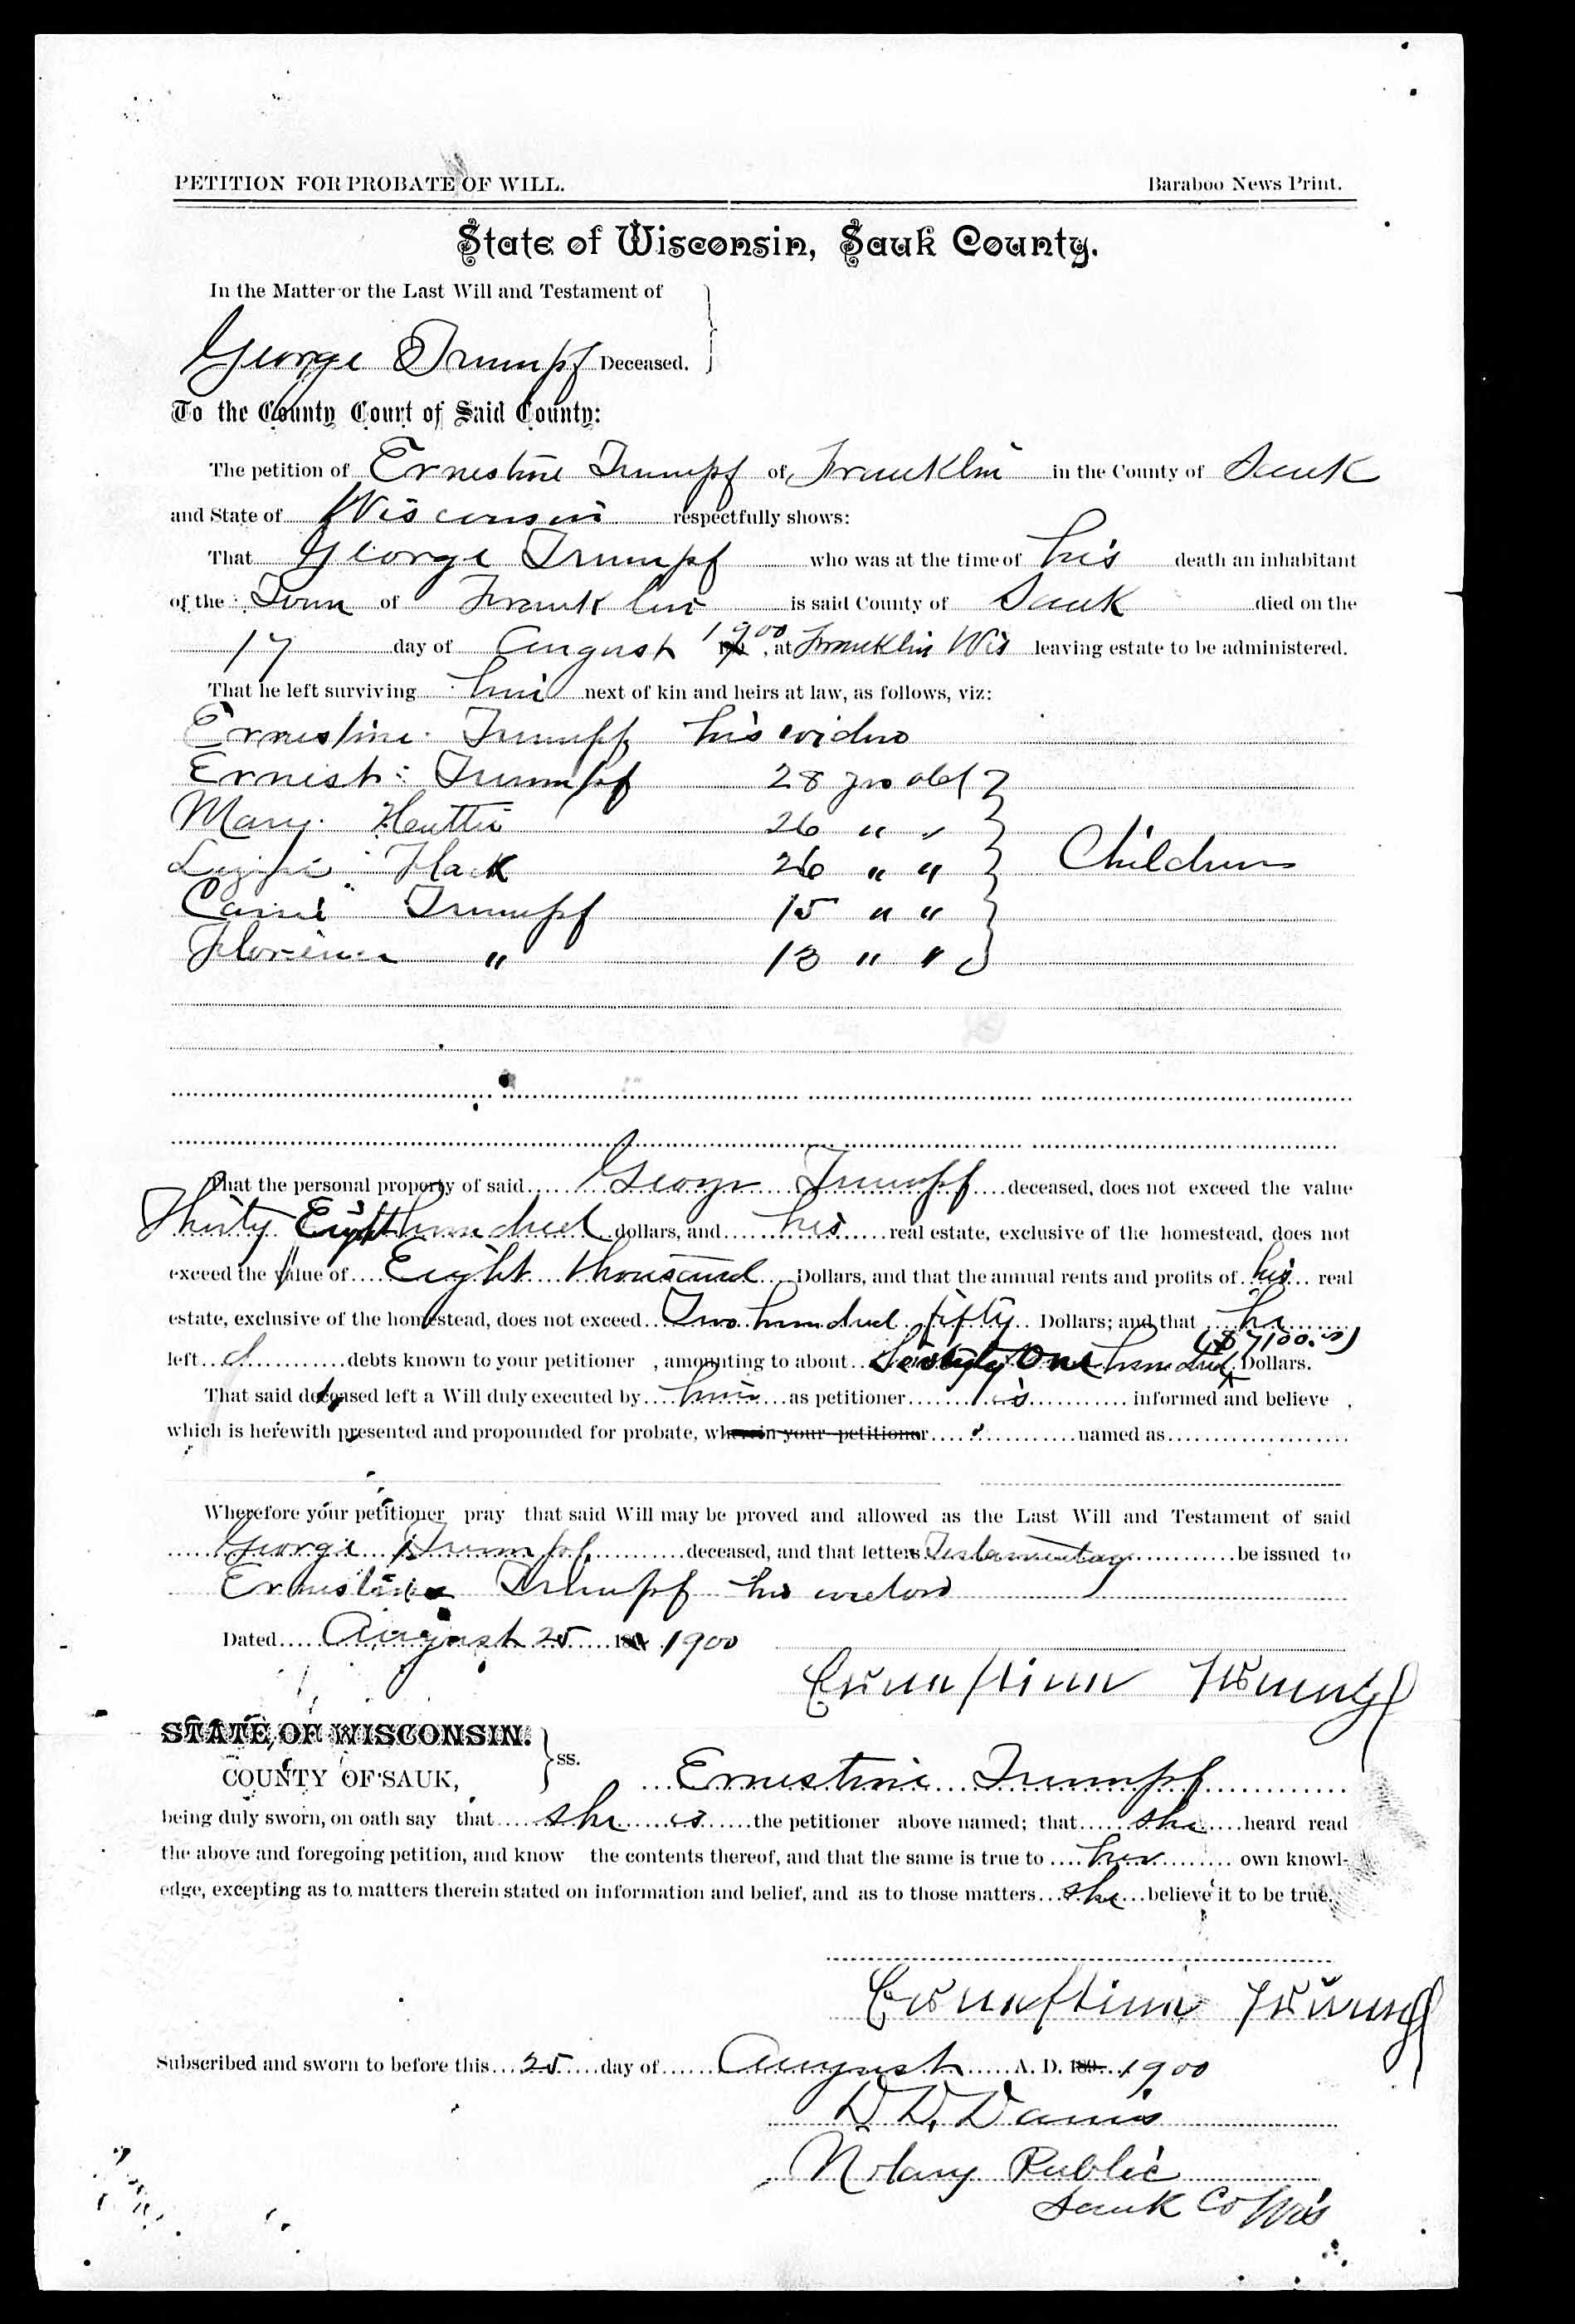 PETITION FOR PROBATE OF WILL. Baraboo News Print.
State of Wisconsin, Sauk County.
In the Matter or the Last Will and Testament of
George Trumpf Deceased.
To the County Court of Said County:
The petition of Ernestine Trumpf of Franklin in the County of Sauk
and State of Wisconsin respectfully shows:
That George Trumpf who was at the time of his death an inhabitant
of the Town of Franklin is said County of Sauk died on the
17 day of August 1900, at Franklin Wis leaving estate to be administered.
That he left surviving him next of kin and heirs at law, as follows, viz:
Ernestine Trumpf his widow
Ernest Trumpf 28 yrs old
Mary 26 " "
Lizzie Flack 26 " " Children
Carrie Trumpf 15 " "
Florence " 13 " "
That the personal property of said George Trumpf deceased, does not exceed the value
Thirty Eight hundred dollars, and his real estate, exclusive of the homestead, does not
exceed the value of Eight thousand Dollars, and that the annual rents and profits of his real
estate, exclusive of the homestead, does not exceed Two hundred fifty Dollars; and that he
($7100.00)
left debts known to your petitioner , amounting to about Seventy One hundred Dollars.
That said deceased left a Will duly executed by him as petitioner is informed and believe ,
which is herewith presented and propounded for probate, wherein your petitioner named as
Wherefore your petitioner pray that said Will may be proved and allowed as the Last Will and Testament of said
George Trumpf deceased, and that letters Testamentary be issued to
Ernestine Trumpf his widow
Dated August 25 189 1900
Ernestine Trumpf
STATE OF WISCONSIN.
COUNTY OF SAUK, ss. Ernestine Trumpf
being duly sworn, on oath say that she is the petitioner above named; that she heard read
the above and foregoing petition, and know the contents thereof, and that the same is true to her own knowl-
edge, excepting as to matters therein stated on information and belief, and as to those matters she believe it to be true.
Ernestine Trumpf
Subscribed and sworn to before this 25 day of August A. D. 189 1900
D. D. Davis
Notary Public
Sauk Co Wis